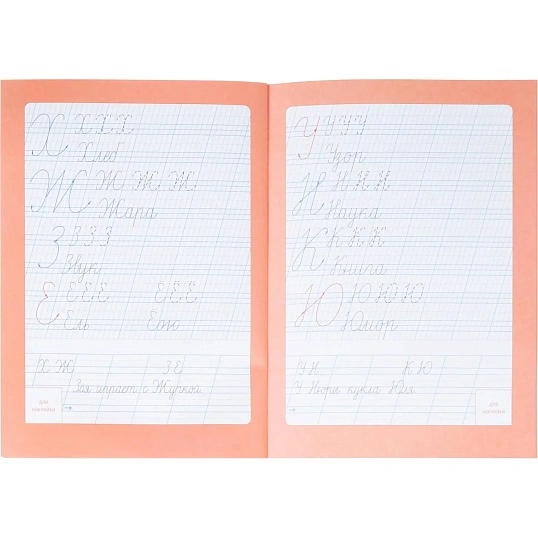 Х Х Х Х
Хлеб
Ж Ж Ж Ж
Жара
З З З З
Звук
Е Е Е Е Ё Ё Ё
Ель Ёж
Х Ж З Е
Зоя играет с Жучкой.
для наклейки
У У У У
Узор
Н Н Н Н
Наука
К К К К
Книга
Ю Ю Ю Ю
Юмор
У Н К Ю
У Нюры кукла Юля.
для наклейки